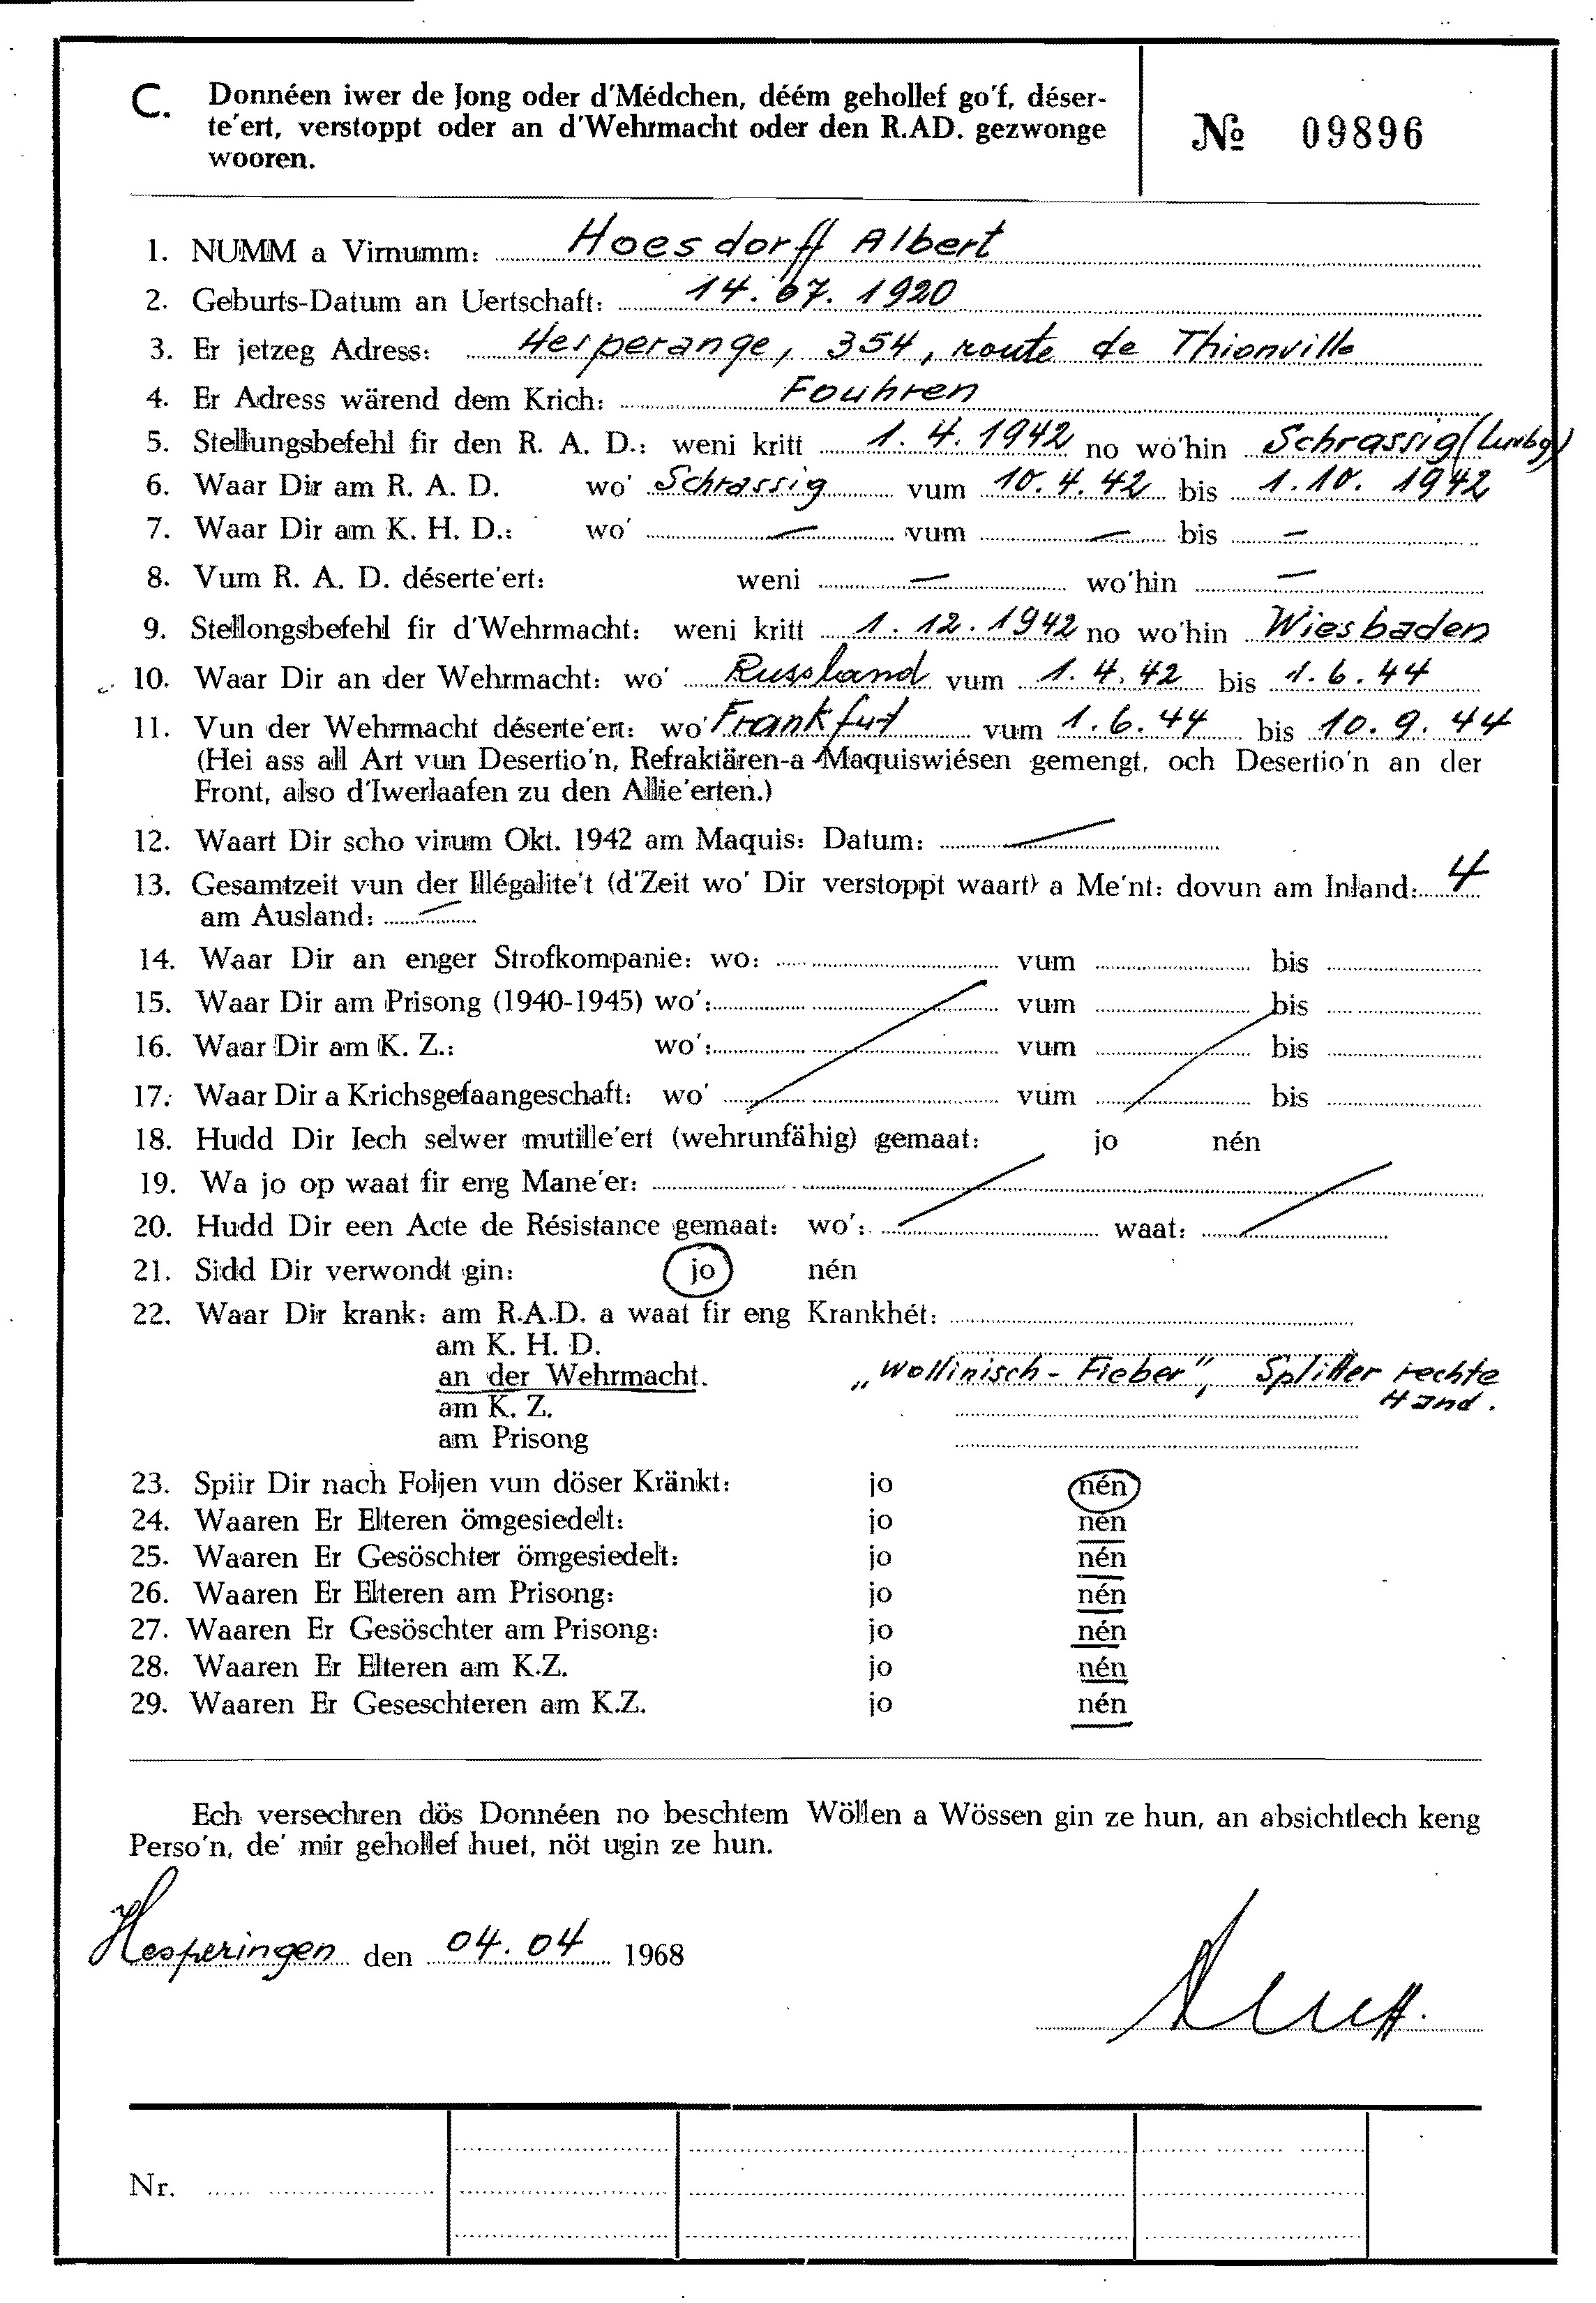 C. Donnéen iwer de Jong oder d'Médchen, déém gehollef go'f, déser-
te'ert, verstoppt oder an d'Wehrmacht oder den R.AD. gezwonge
wooren.
№ 09896
1. NUMM a Virnumm: Hoesdorff Albert
2. Geburts-Datum an Uertschaft: 14.07.1920
3. Er jetzeg Adress: Hesperange, 354, route de Thionville
4. Er Adress wärend dem Krich: Fouhren
5. Stellungsbefehl fir den R. A. D.: weni kritt 1.4.1942 no wo'hin Schrassig (Luxbg)
6. Waar Dir am R. A. D. wo' Schrassig vum 10.4.42 bis 1.10.1942
7. Waar Dir am K. H. D.: wo' — vum — bis —
8. Vum R. A. D. déserte'ert: weni — wo'hin —
9. Stellongsbefehl fir d'Wehrmacht: weni kritt 1.12.1942 no wo'hin Wiesbaden
10. Waar Dir an der Wehrmacht: wo' Russland vum 1.4.42 bis 1.6.44
11. Vun der Wehrmacht déserte'ert: wo' Frankfurt vum 1.6.44 bis 10.9.44
(Hei ass all Art vun Desertio'n, Refraktären-a Maquiswiésen gemengt, och Desertio'n an der
Front, also d'Iwerlaafen zu den Allie'erten.)
12. Waart Dir scho virum Okt. 1942 am Maquis: Datum: —
13. Gesamtzeit vun der Illégalite't (d'Zeit wo' Dir verstoppt waart) a Me'nt: dovun am Inland: 4
am Ausland: —
14. Waar Dir an enger Strofkompanie: wo: vum bis
15. Waar Dir am Prisong (1940-1945) wo': vum bis
16. Waar Dir am K. Z.: wo': vum bis
17. Waar Dir a Krichsgefaangeschaft: wo' vum bis
18. Hudd Dir Iech selwer mutille'ert (wehrunfähig) gemaat: jo nén
19. Wa jo op waat fir eng Mane'er:
20. Hudd Dir een Acte de Résistance gemaat: wo': waat:
21. Sidd Dir verwondt gin: jo nén
22. Waar Dir krank: am R.A.D. a waat fir eng Krankhét:
am K. H. D.
an der Wehrmacht. „Wollinisch-Fieber", Splitter rechte
Hand.
am K. Z.
am Prisong
23. Spiir Dir nach Foljen vun döser Kränkt: jo nén
24. Waaren Er Elteren ömgesiedelt: jo nén
25. Waaren Er Gesöschter ömgesiedelt: jo nén
26. Waaren Er Elteren am Prisong: jo nén
27. Waaren Er Gesöschter am Prisong: jo nén
28. Waaren Er Elteren am K.Z. jo nén
29. Waaren Er Geseschteren am K.Z. jo nén
Ech versechren dös Donnéen no beschtem Wöllen a Wössen gin ze hun, an absichtlech keng
Perso'n, de' mir gehollef huet, nöt ugin ze hun.
Hesperingen den 04.04 1968
Nr.